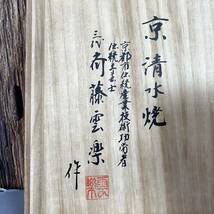 京 清水焼
京都府伝統産業技術功労者
伝統工芸士
三代 斉藤雲楽
作